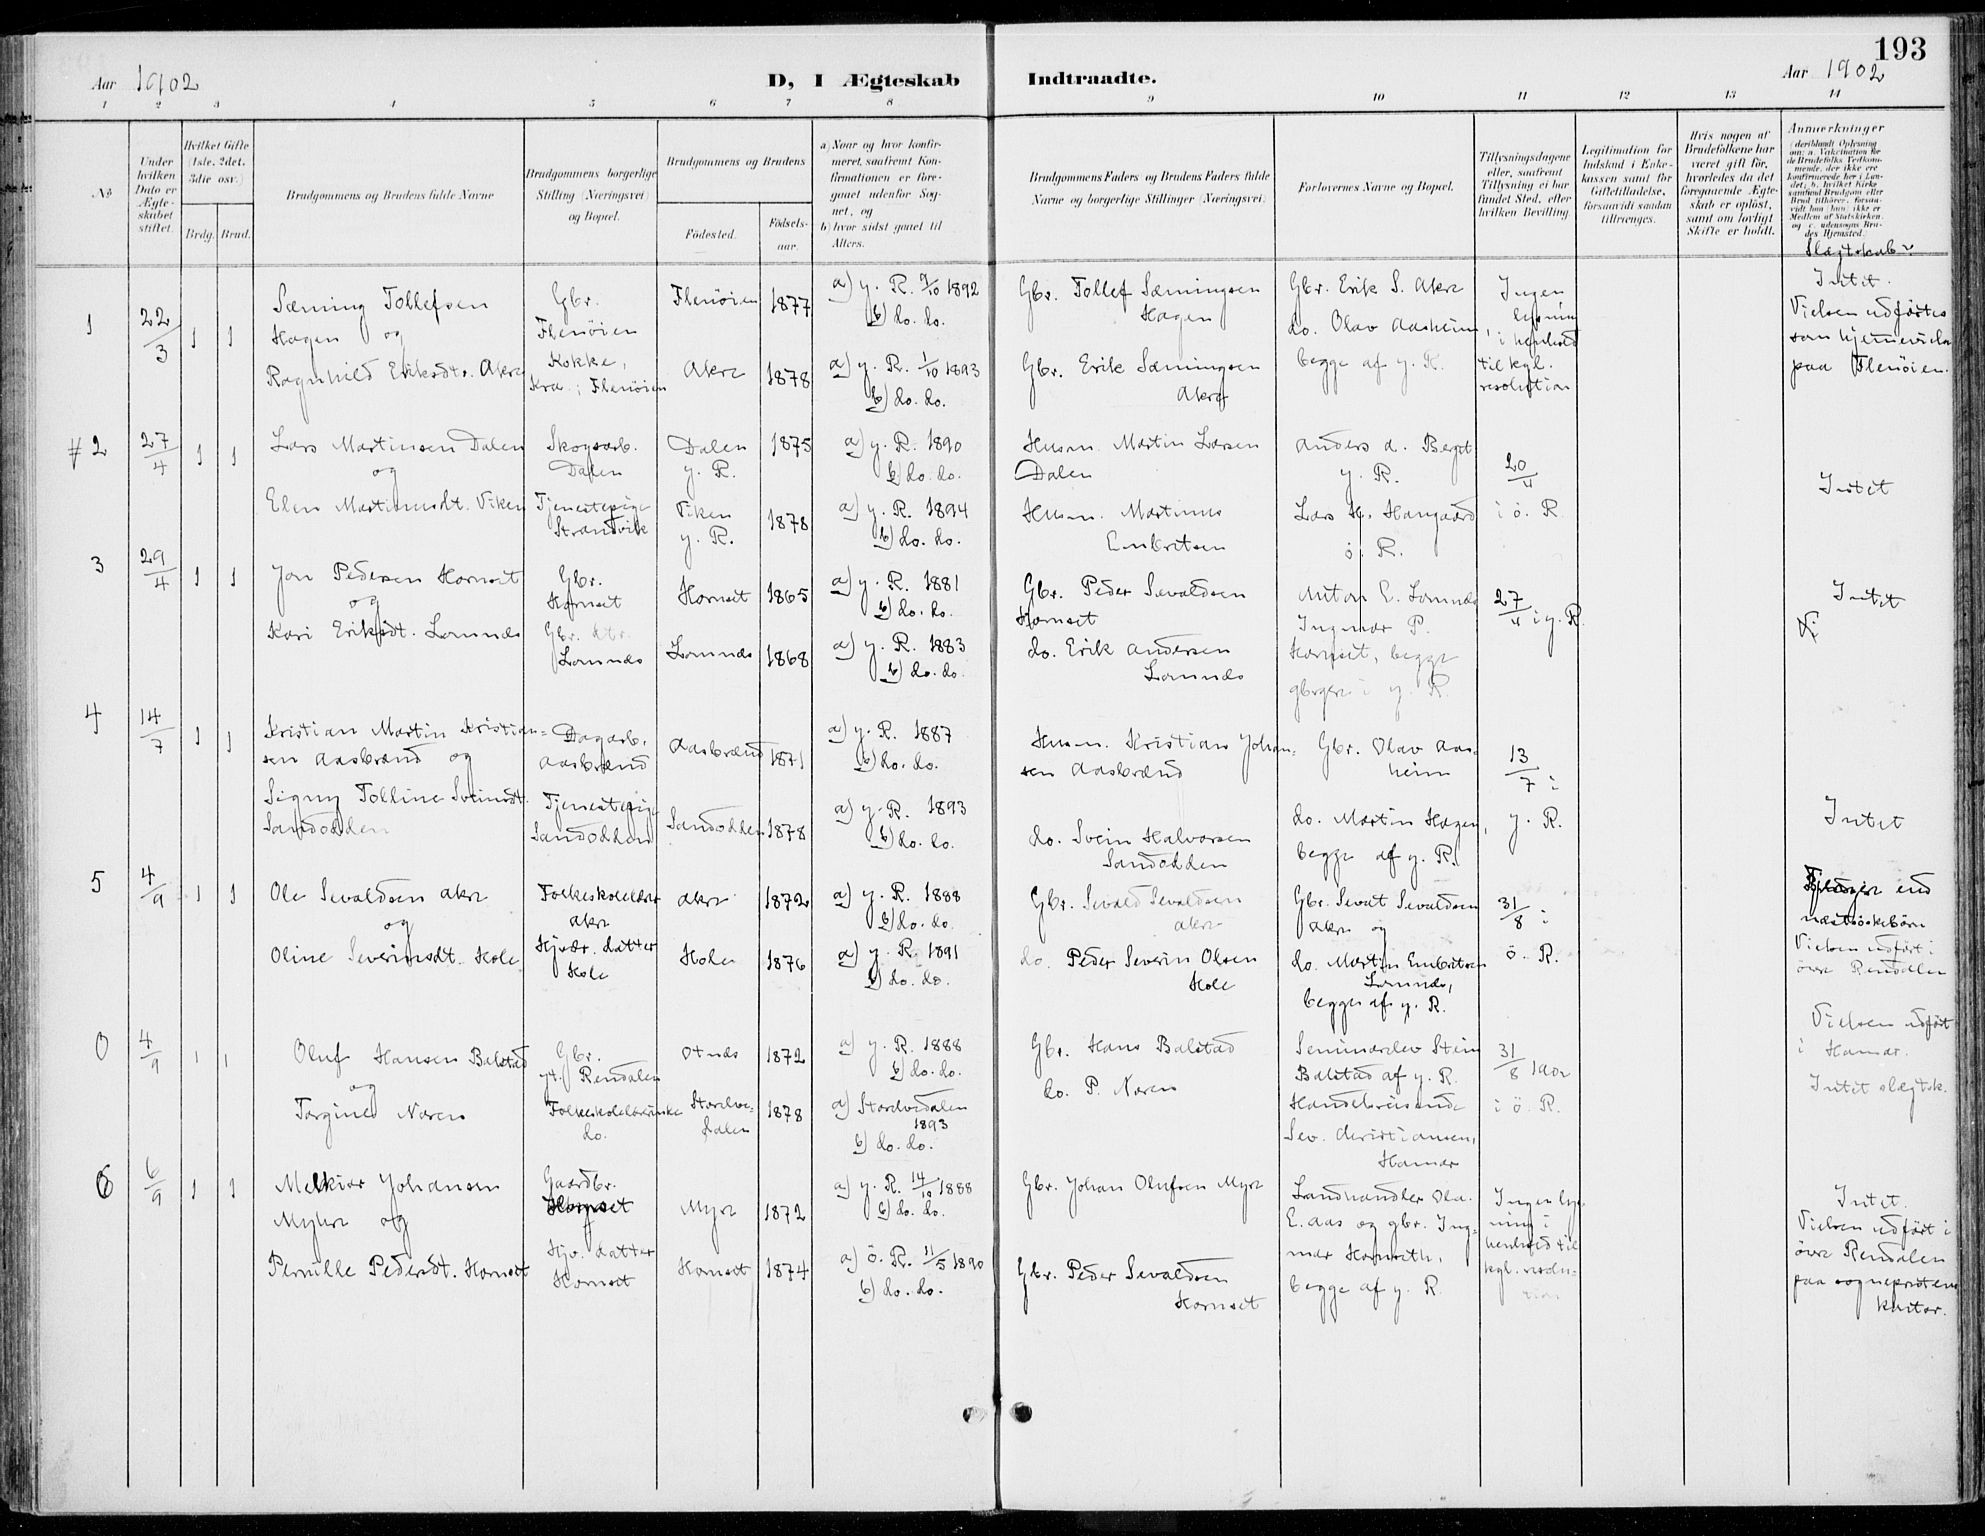 193
Aar 1902
D, I Ægteskab Indtraadte.
Aar 1902
1 2 3 4 5 6 7 8 9 10 11 12 13 14
No
Under hvilken Dato er Ægteskabet stiftet.
Hvilket Gifte (1ste, 2det, 3die osv.)
Brdg. Brud.
Brudgommens og Brudens fulde Navne
Brudgommens borgerlige Stilling (Næringsvei) og Bopæl.
Brudgommens og Brudens
Födested.
Födselsaar.
a) Naar og hvor konfirmeret, saafremt Konfirmationen er foregaaet udenfor Sognet, og
b) hvor sidst gaaet til Alters.
Brudgommens Faders og Brudens Faders fulde Navne og borgerlige Stillinger (Næringsvei)
Forlovernes Navne og Bopæl.
Tillysningsdagene eller, saafremt Tillysning ei har fundet Sted, efter hvilken Bevilling
Legitimation for Indskud i Enkekassen samt for Giftetilladelse, forsaavidt saadan tiltrænges.
Hvis nogen af Brudefolkene har været gift för, hvorledes da det foregaaende Ægteskab er oplöst, samt om lovligt Skifte er holdt.
Anmerkninger (deriblandt Oplysning om: a. Vakcination for de Brudefolks Vedkommende, der ikke ere konfirmerede her i Landet; b. hvilket Kirkesamfund Brudgom eller Brud tilhörer, forsaavidt han (hun) ikke er Medlem af Statskirken. og c. udensogns Brudes Hjemsted.)
Slægtskab
1 22/3 1 1
Sæming Tollefsen
Hagen og
Ragnhild Eriksdtr. Akre
Gbr.
Flenöien
Kokke,
Kra.; Flenöien
Flenöien 1877
Akre 1878
a) y. R. 9/10 1892
b) do. do.
a) y. R. 1/10 1893
b) do. do.
Gbr. Tollef Sæmingsen
Hagen
Gbr. Erik Sæmingsen
Akre
Gbr. Erik S. Akre
do. Olav Aasheim,
begge af y. R.
Ingen
lysning
i henhold
til kgl.
resolution
Intet.
Vielsen udförtes
som hjemmevielse
paa Flenöien.
# 2 27/4 1 1
Lars Martinsen Dalen
og
Elen Martinusdt. Viken
Skogsarb.
Dalen
Tjenestepige
Strandvik
Dalen
y. R. 1875
Viken
y. R. 1878
a) y. R. 1890
b) do. do.
a) y. R. 1894
b) do. do.
Husm. Martin Larsen
Dalen
Husm. Martinus
Embretsen
Anders A. Berget
y. R.
Lars H. Haugaard
ö. R.
20/4
i ö. R.
Intet
3 29/4 1 1
Jon Pedersen Hornset
og
Kari Eriksdt. Lomnes
Gbr.
Hornset
Gbr. dtr.
Lomnes
Hornset 1865
Lomnes 1868
a) y. R. 1881
b) do. do.
a) y. R. 1883
b) do. do.
Gbr. Peder Sevaldsen
Hornset
do. Erik Andersen
Lomnes
Anton E. Lomnes
Ingmar P.
Hornset, begge
gbrgere i y. R.
27/4 i y. R.
Intet
4 14/7 1 1
Kristian Martin Kristian-
sen Aasbrænd og
Signy Tolline Sveinsdt.
Sandodden
Dagarb.
Aasbrænd
Tjenestepige
Sandodden
Aasbrænd 1871
Sandodden 1878
a) y. R. 1887
b) do. do.
a) y. R. 1893
b) do. do.
Husm. Kristian Johan-
sen Aasbrænd
do. Svein Halvorsen
Sandodden
Gbr. Olav Aas-
heim
do. Martin Hagen,
begge af y. R.
13/7 i
y. R.
Intet
5 4/9 1 1
Ole Sevaldsen Akre
og
Oline Severinsdt. Hole
Folkeskolelærer
Akre
Gbr. datter
Hole
Akre 1872
Hole 1876
a) y. R. 1888
b) do. do.
a) y. R. 1891
b) do. do.
Gbr. Sevald Sevaldsen
Akre
do. Peder Severin Olsen
Hole
Gbr. Sevat Sevaldsen
Akre og
do. Martin Embretsen
Lomnes,
begge af y. R.
31/8 i
ö. R.
end
næstsöskebörn
Vielsen udfört i
övre Rendalen
0 4/9 1 1
Oluf Hansen Balstad
og
Torgine Noren
Gbr.
yt. Rendalen
Folkeskolelærerinde
do.
Otnes 1872
Storelve-
dalen 1878
a) y. R. 1888
b) do. do.
a) Storelvedalen
1893
b) do. do.
Gbr. Hans Balstad
do. P. Noren
Seminarelev Stein
Balstad af y. R.
Handelsreisende
Sev. Christiansen,
Hamar
31/8 1902
i ö. R.
Vielsen udfört
i Hamar.
Intet slægtsk.
6 6/9 1 1
Melkior Johansen
Myhre og
Pernille Pedersdt. Hornset
Gaardbr.
Hornset
Gbr. datter
Hornset
Myre 1872
Hornset 1874
a) y. R. 14/10 1888
b) do. do.
a) ö. R. 11/5 1890
b) do. do.
Gbr. Johan Olufsen Myre
Gbr. Peder Sevaldsen
Hornset
Landhandler Ola
E. Aas og gbr. Ing-
mar Hornseth,
begge af y. R.
Ingen lys-
ning i
henhold til
kgl. resolu-
tion
Intet.
Vielsen udfört i
övre Rendalen
paa sogneprestens
kontor.